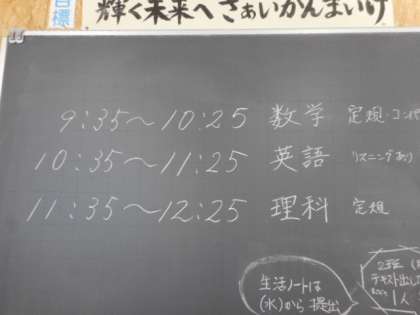 目標
輝く未来へ さぁいかんまいけ
9:35～10:25 数学 定規・コンパ
10:35～11:25 英語 リスニングあり
11:35～12:25 理科 定規
生活ノートは
(水)から提出
2班
テキスト出し
1人